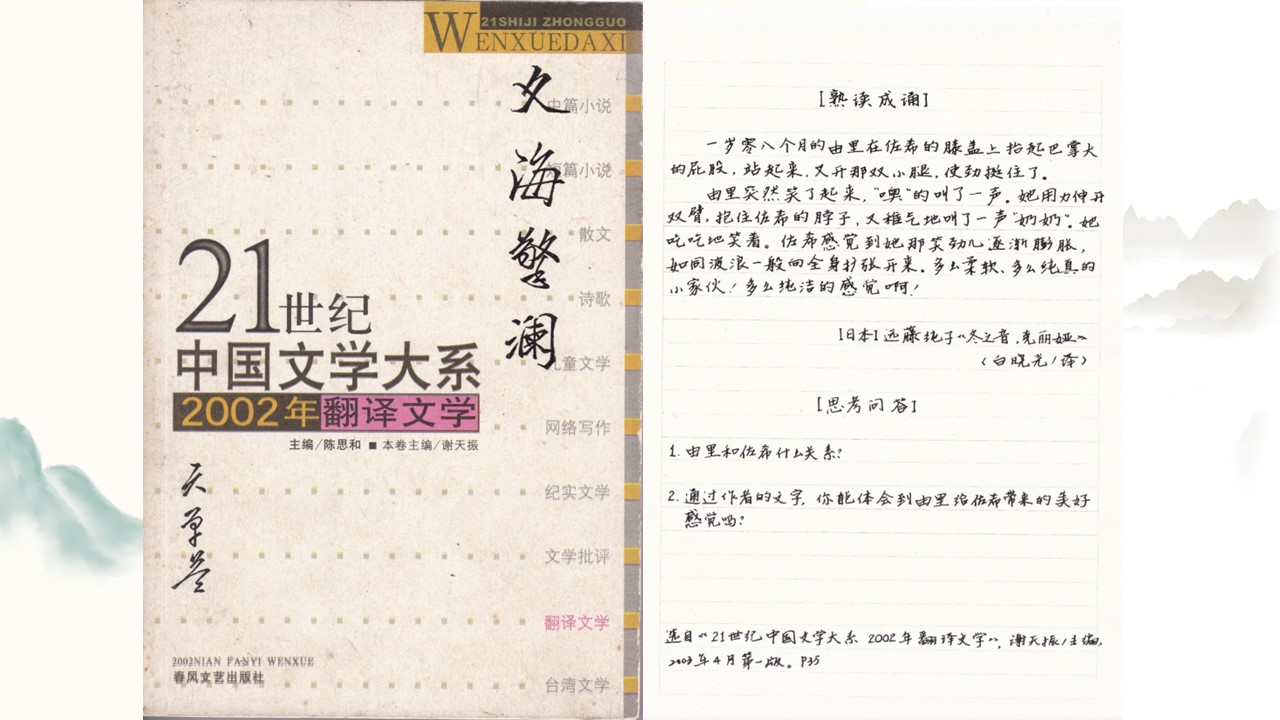 21SHIJI ZHONGGUO
WENXUEDAXI
文海擎澜
中篇小说
短篇小说
散文
诗歌
儿童文学
网络写作
纪实文学
文学批评
翻译文学
台湾文学
21世纪
中国文学大系
2002年翻译文学
主编/陈思和 ■ 本卷主编/谢天振
天草
2002NIAN FANYI WENXUE
春风文艺出版社
[熟读成诵]
一岁零八个月的由里在佐希的膝盖上抬起巴掌大
的屁股，站起来，叉开那双小腿，使劲挺住了。
由里突然笑了起来，“噢”的叫了一声。她用力伸开
双臂，抱住佐希的脖子，又稚气地叫了一声“奶奶”。她
吃吃地笑着。佐希感觉到她那笑劲儿逐渐膨胀，
如同波浪一般向全身扩张开来。多么柔软、多么纯真的
小家伙！多么纯洁的感觉啊！
[日本]远藤纯子《冬之音·克丽娅》
（白晓光/译）
[思考问答]
1.由里和佐希什么关系？
2.通过作者的文字，你能体会到由里给佐希带来的美好
感觉吗？
选自《21世纪中国文学大系 2002年翻译文学》，谢天振/主编，
2003年4月第一版。P35